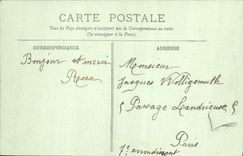 CARTE POSTALE
Tous les Pays étrangers n'acceptent pas la Correspondance au recto
(Se renseigner à la Poste).
CORRESPONDANCE
ADRESSE
Bonjour et merci
Rosa
Monsieur
Jacques Wolligemuth
5 Passage Landrieu 5
Paris
7e arrondiment